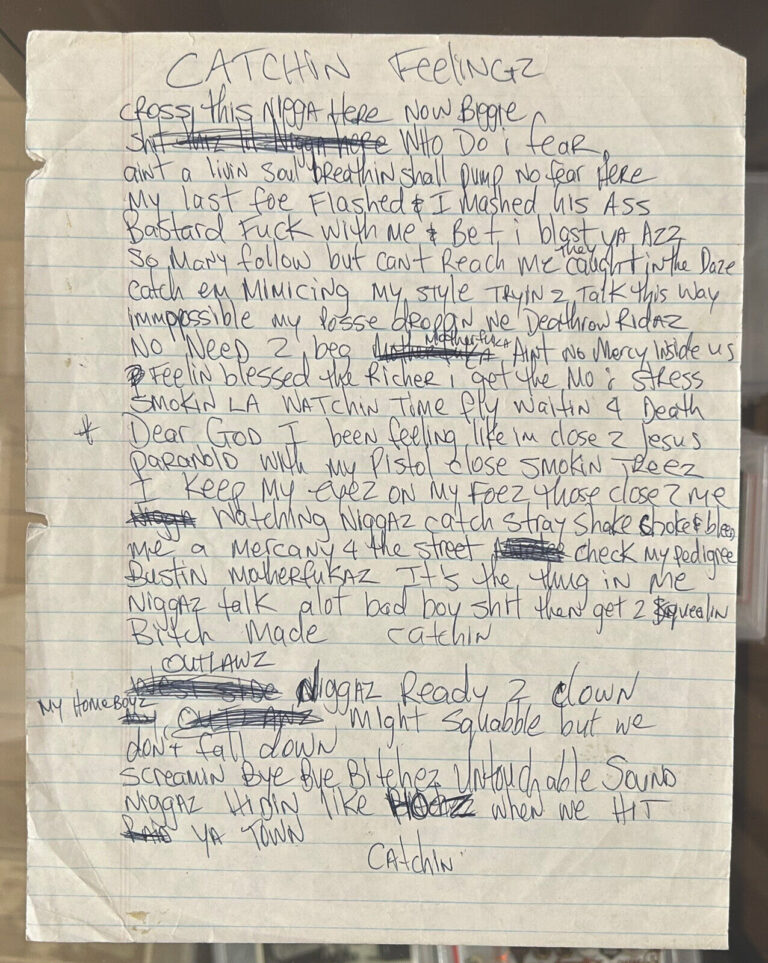 CATCHIN FeeliNGZ
cross this Nigga Here Now Biggie
shit WHo Do i fear
aint a livin soul breathin shall pump No fear Here
My last foe Flashed & I Mashed his Ass
Bastard Fuck with Me & Bet i blast ya Azz
So Many follow but cant Reach Me they caught in the Daze
catch em Mimicing My style TRYIN 2 Talk this way
immpossible my posse droppn we Deathrow Ridaz
No Need 2 beg Motherfuka Aint No Mercy Inside us
Feelin blessed the Richer i get the Mo i stress
Smokin LA WATCHin Time fly Waitin 4 Death
* Dear God I been feeling like im close 2 Jesus
paranoid with my Pistol close smokin Treez
I keep My eyez on My Foez those close 2 me
Watching Niggaz catch stray shake choke & bleed
me a Mercany 4 the street check my pedigree
Bustin Motherfukaz It's the thug in me
Niggaz talk alot bad boy shit then get 2 squealin
Bitch Made catchin
OUTLAWZ
Niggaz Ready 2 clown
My HomeBoyz might squabble but we
don't fall down
Screamin Bye Bye Bitchez Untouchable Sound
Niggaz Hidin like HOEZ when we HIT
YA TOWN
CAtchiN